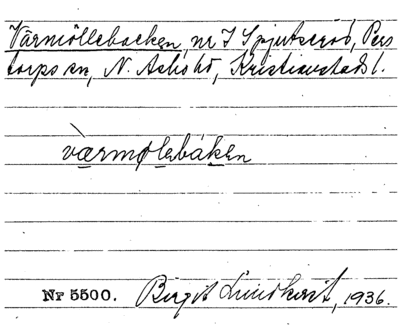 Värmöllebacken, nr I Spjutseröd, Pers
torps sn, N. Åsbo hd, Kristianstads l.
værmølebáken
Nr 5500. Birgit Lundkvist, 1936.